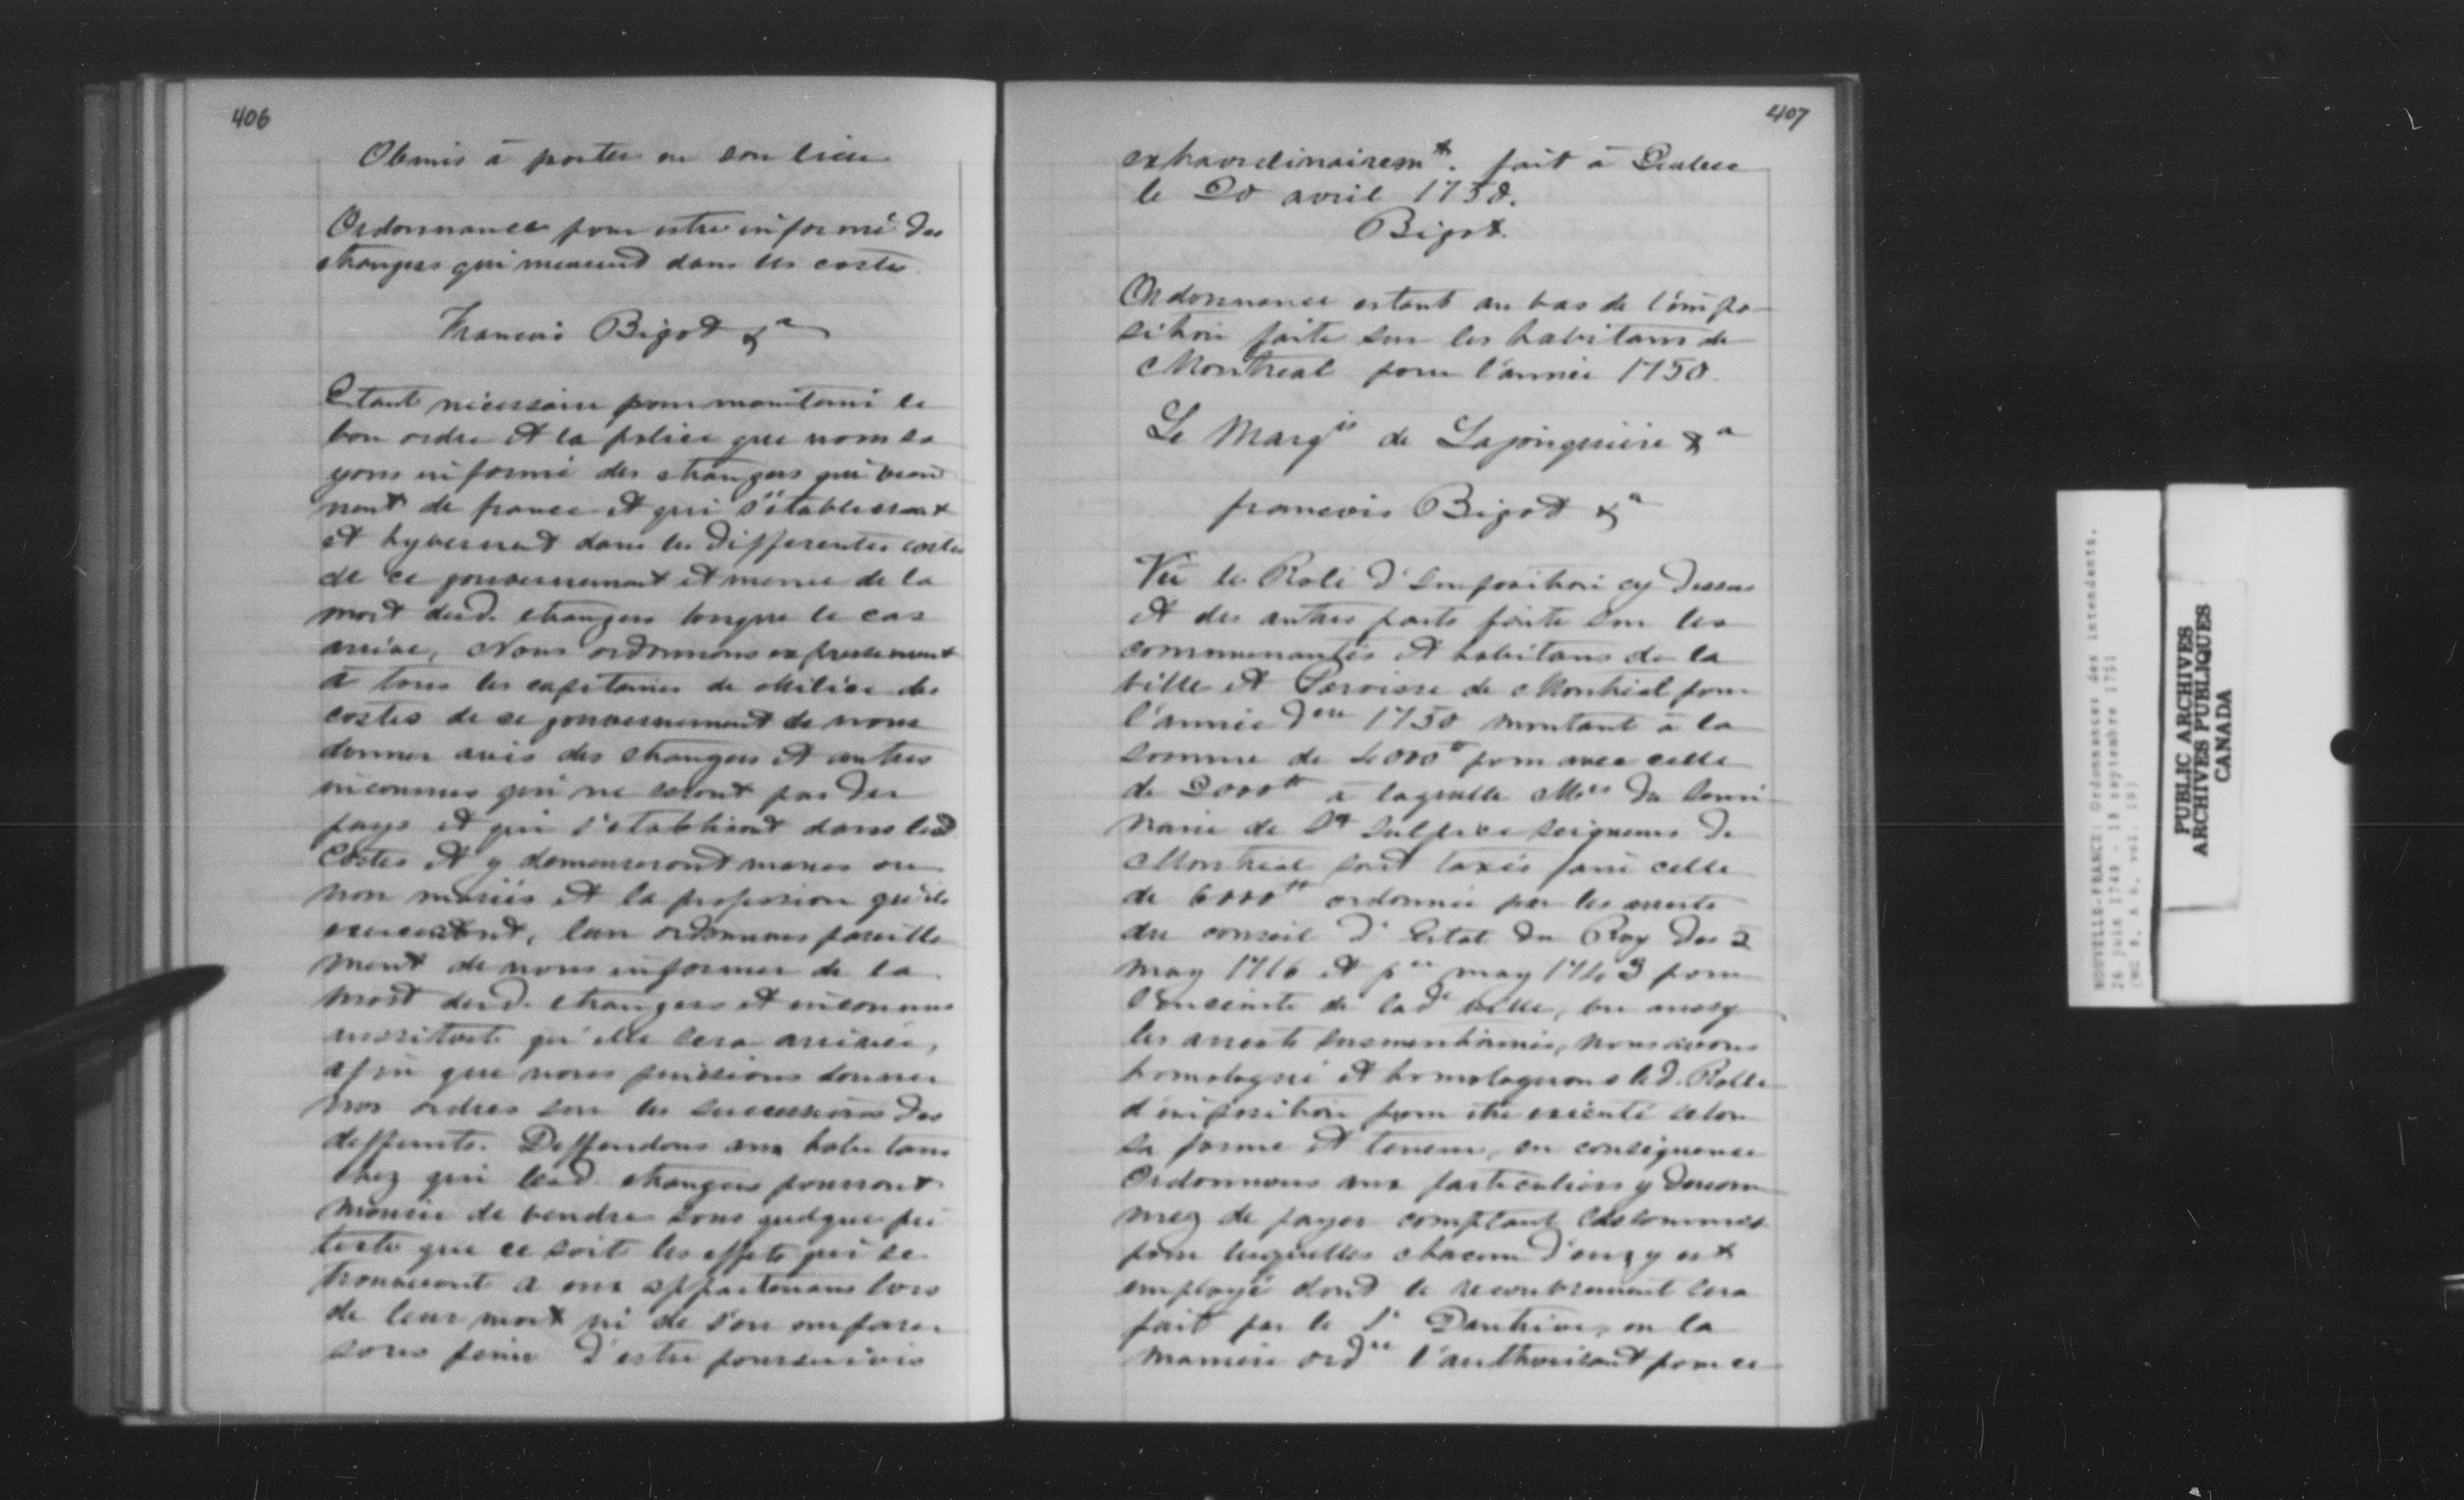 406
Obmis à porter en son lieu
Ordonnance pour estre informé des
etrangers qui meurend dans les costes.
Francois Bigot &a
Etant nécessaire pour maintenir le
bon ordre et la police que nous so
yons informé des etrangers qui vien
nent de france et qui s'établissent
et hyvernent dans les differentes costes
de ce gouvernement et meme de la
mort desd. etrangers lorsque le cas
arrive, Nous ordonnons expressement
à tous les capitaines de Milice des
costes de ce gouvernement de nous
donner avis des etrangers et autres
inconnus qui ne seront pas du
pays et qui s'etabliront dans lesd
Costes et y demeureront mariés ou
non mariés et la profession qu'ils
exerceront, leur ordonnons pareille
ment de nous informer de la
mort desd. etrangers et inconnus
aussitost qu'elle sera arrivée,
afin que nous puissions donner
nos ordres sur les successions des
deffunts. Deffendons aux habitans
chez qui lesd. etrangers pourront
mourir de vendre sous quelque pré
texte que ce soit les effets qui se
trouveront a eux appartenans lors
de leur mort ni de s'en emparer
sous peine d'estre poursuivis
407
extraordinairemt. fait à Quebec
le 20 avril 1750.
Bigot.
Ordonnance estant au bas de l'impo
sition faite sur les habitans de
Montreal pour l'année 1750.
Le Marqis de Lajonquiere &a
francois Bigot &a
Vu le Role d'Imposition cy dessus
et des autres parts faite sur les
communautés et habitans de la
ville et Paroisse de Montréal pour
l'année dere 1750 montant à la
somme de 4000tt pour avec celle
de 2000tt a laquelle Mrs du Semi
naire de St Sulpice seigneurs de
Montreal sont taxés faire celle
de 6000tt ordonnée par les arrests
du conseil d'Estat du Roy des 5
may 1716 et per may 1743 pour
l'enceinte de lade ville, vu aussy
les arrests susmentionnés, nous avons
homologué et homologuons led. Rolle
d'imposition pour etre executé selon
sa forme et teneur, en conséquence
Ordonnons aux particuliers y denom
mez de payer comptant les sommes
pour lesquelles chacun d'eux y est
employé dont le recouvrement sera
fait par le Sr Dautrive, en la
maniere ordre l'authorisant pour ce
NOUVELLE-FRANCE: Ordonnances des intendants.
26 juin 1748 - 18 septembre 1751
PUBLIC ARCHIVES
ARCHIVES PUBLIQUES
CANADA